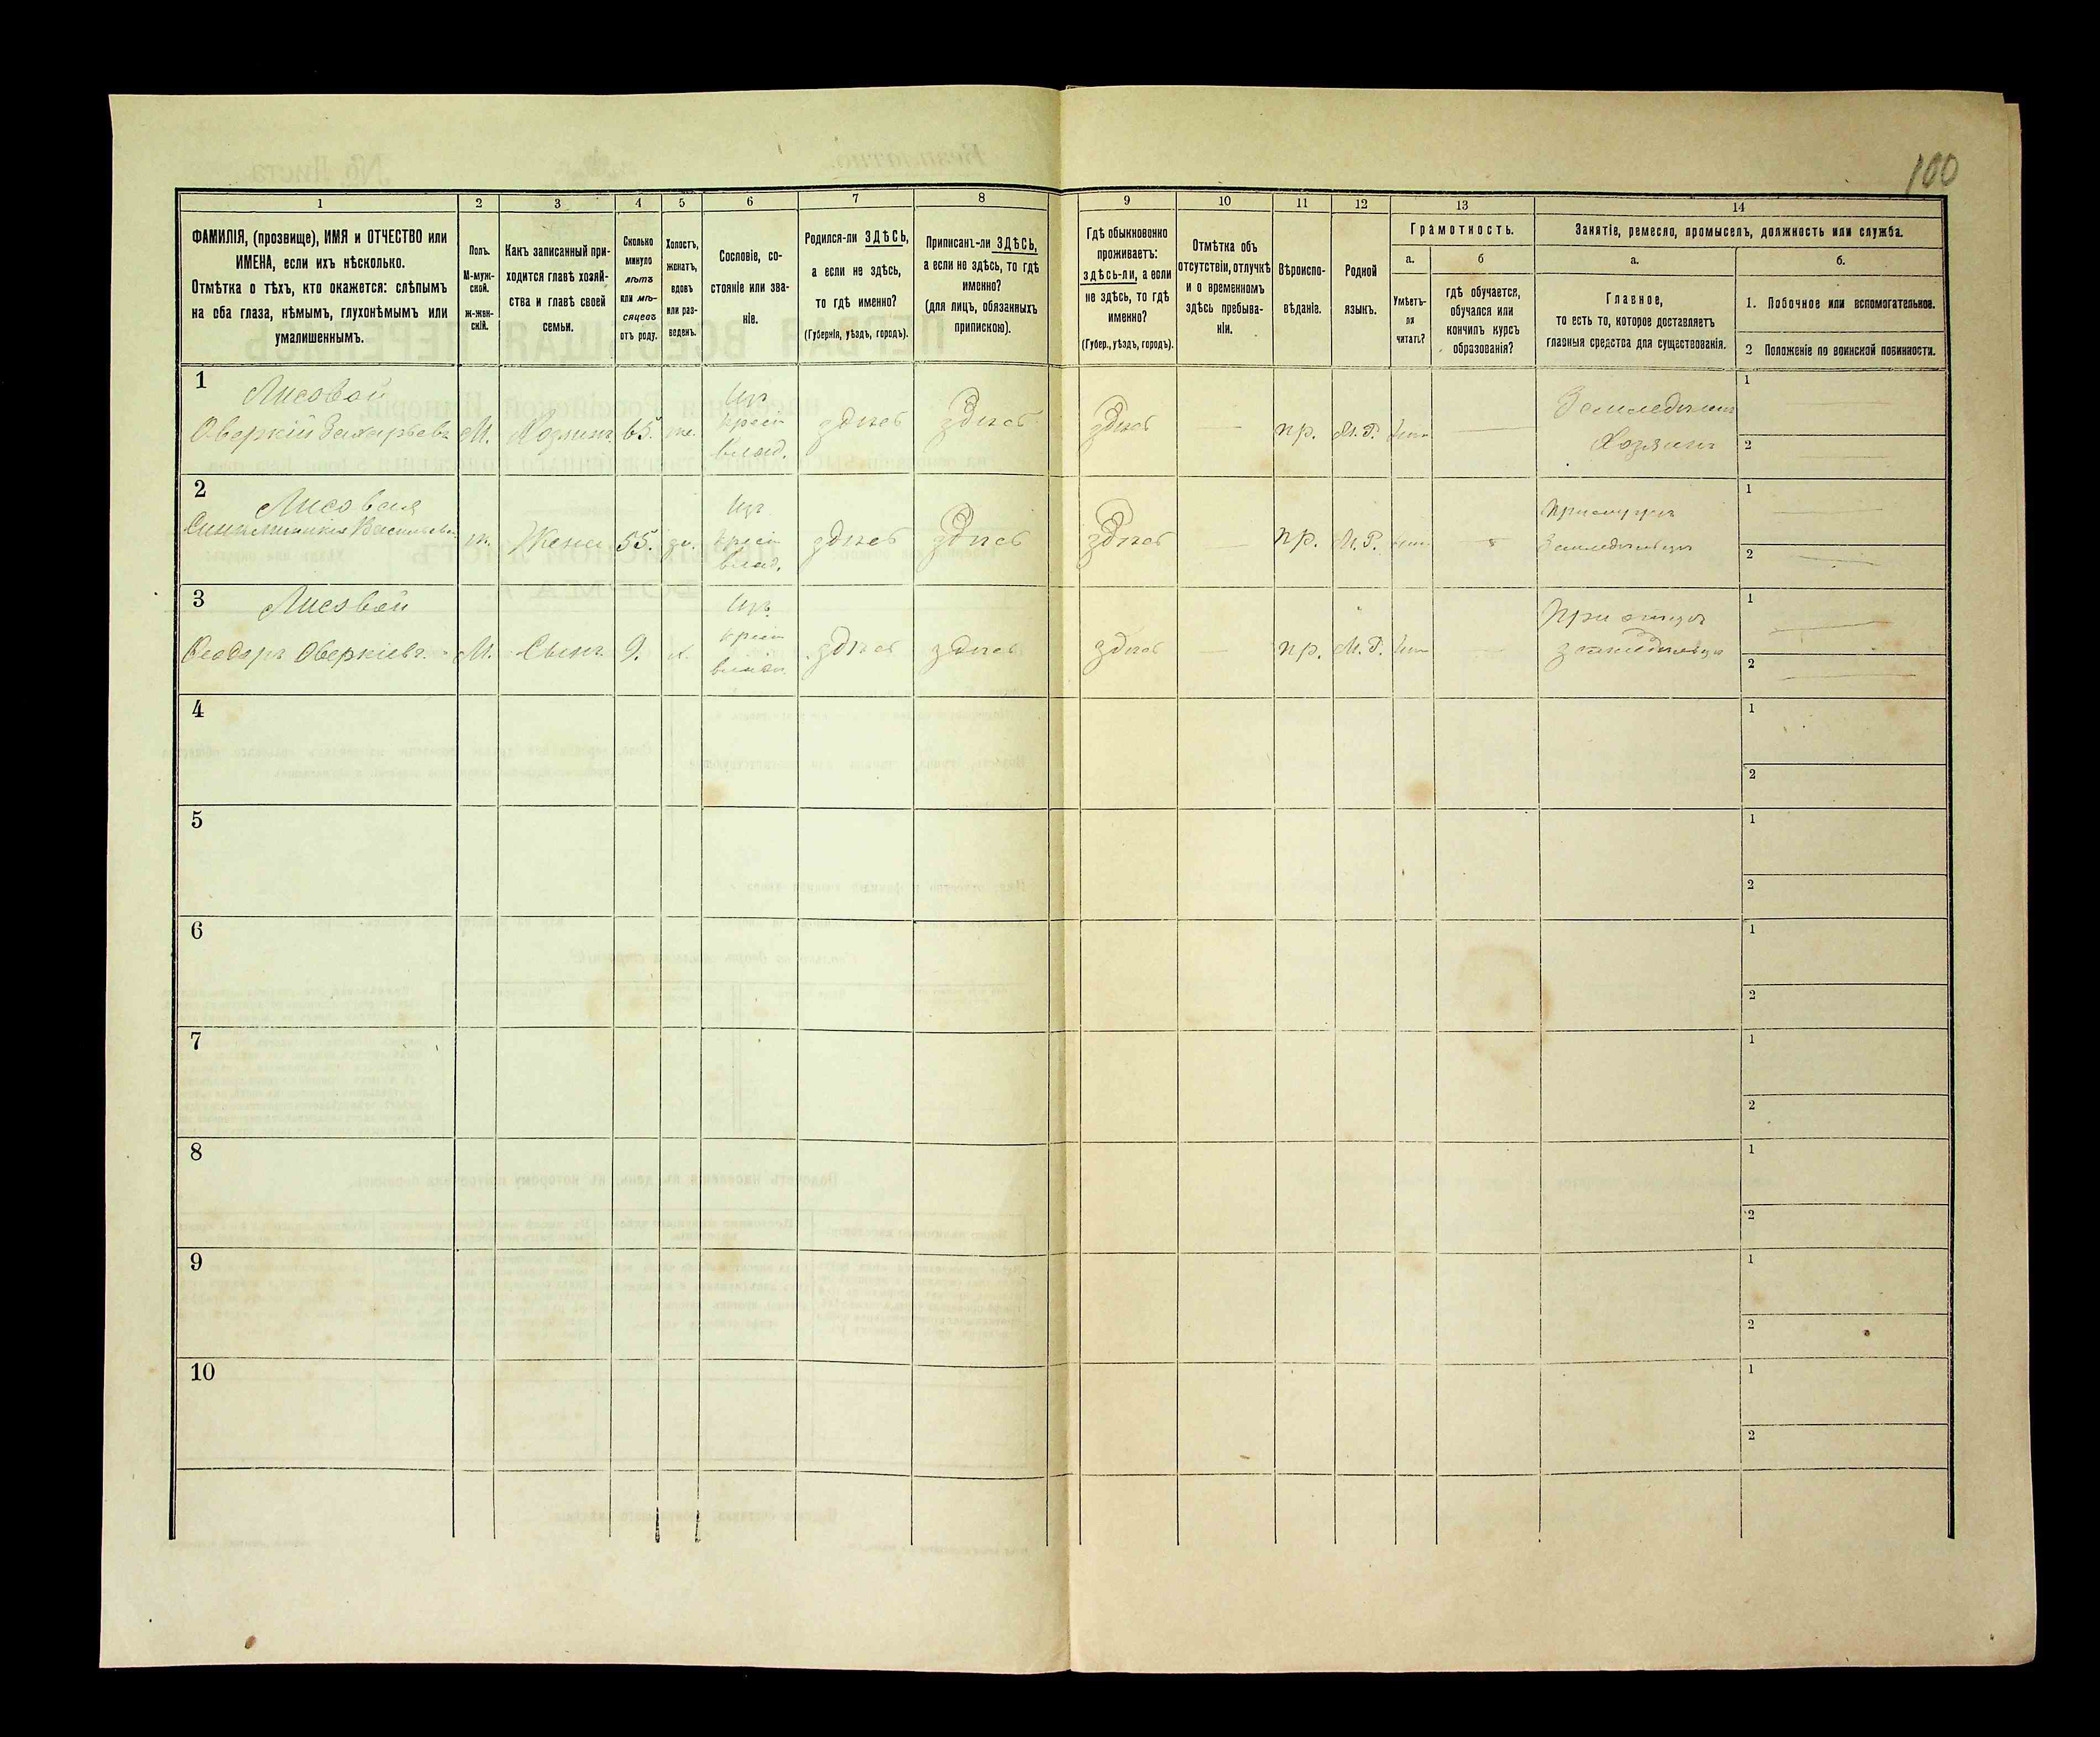 100
1
2
3
4
5
6
7
8
9
10
11
12
13
14
ФАМИЛІЯ, (прозвище), ИМЯ и ОТЧЕСТВО или
ИМЕНА, если ихъ нѣсколько.
Отмѣтка о тѣхъ, кто окажется: слѣпымъ
на оба глаза, нѣмымъ, глухонѣмымъ или
умалишеннымъ.
Полъ.
М-муж-
ской.
ж-жен-
скій.
Какъ записанный при-
ходится главѣ хозяй-
ства и главѣ своей
семьи.
Сколько
минуло
лѣтъ
или мѣ-
сяцевъ
отъ роду.
Холостъ,
женатъ,
вдовъ
или раз-
веденъ.
Сословіе, со-
стояніе или зва-
ніе.
Родился-ли ЗДѢСЬ,
а если не здѣсь,
то гдѣ именно?
(Губернія, уѣздъ, городъ).
Приписанъ-ли ЗДѢСЬ,
а если не здѣсь, то гдѣ
именно?
(для лицъ, обязанныхъ
припискою).
Гдѣ обыкновенно
проживаетъ:
здѣсь-ли, а если
не здѣсь, то гдѣ
именно?
(Губер., уѣздъ, городъ).
Отмѣтка объ
отсутствіи, отлучкѣ
и о временномъ
здѣсь пребыва-
ніи.
Вѣроиспо-
вѣданіе.
Родной
языкъ.
Грамотность.
а.
Умѣетъ-
ли
читать?
б
гдѣ обучается,
обучался или
кончилъ курсъ
образованія?
Занятіе, ремесло, промыселъ, должность или служба.
а.
Главное,
то есть то, которое доставляетъ
главныя средства для существованія.
б.
1. Побочное или вспомогательное.
2 Положеніе по воинской повинности.
1
Лисовой
Оверкій Захарьевъ
М.
Хозяинъ
65.
же.
Изъ
крест
влад.
здѣсь
здѣсь
здѣсь
—
пр.
М. Р.
—
Земледѣлецъ
Хозяинъ
1
2
2
Лисовая
Васильева
ж.
Жена
55.
за.
Изъ
крест
влад.
здѣсь
здѣсь
здѣсь
—
пр.
М. Р.
—
При мужѣ
Земледѣлецъ
1
2
3
Лисовой
Феодоръ Оверкіевъ
М.
Сынъ
9.
х.
Изъ
крест
здѣсь
здѣсь
здѣсь
—
пр.
М. Р.
—
При отцѣ
земледѣлецъ
1
2
4
1
2
5
1
2
6
1
2
7
1
2
8
1
2
9
1
2
10
1
2